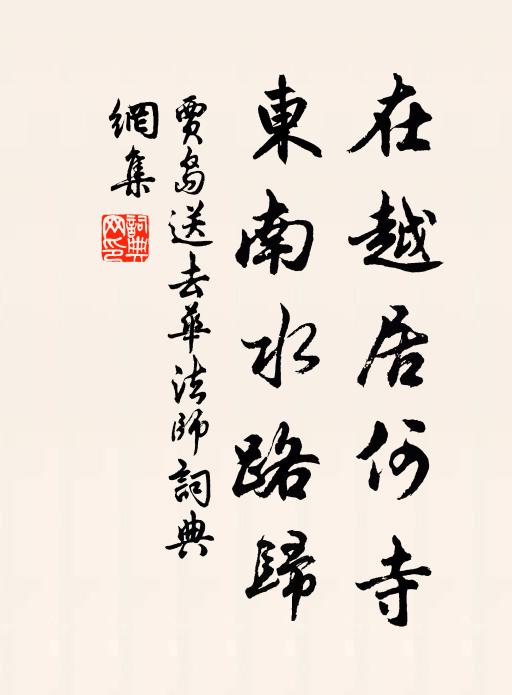 在越居何寺
東南水路歸
賈島送去華法師詞典
網集
詞典網印